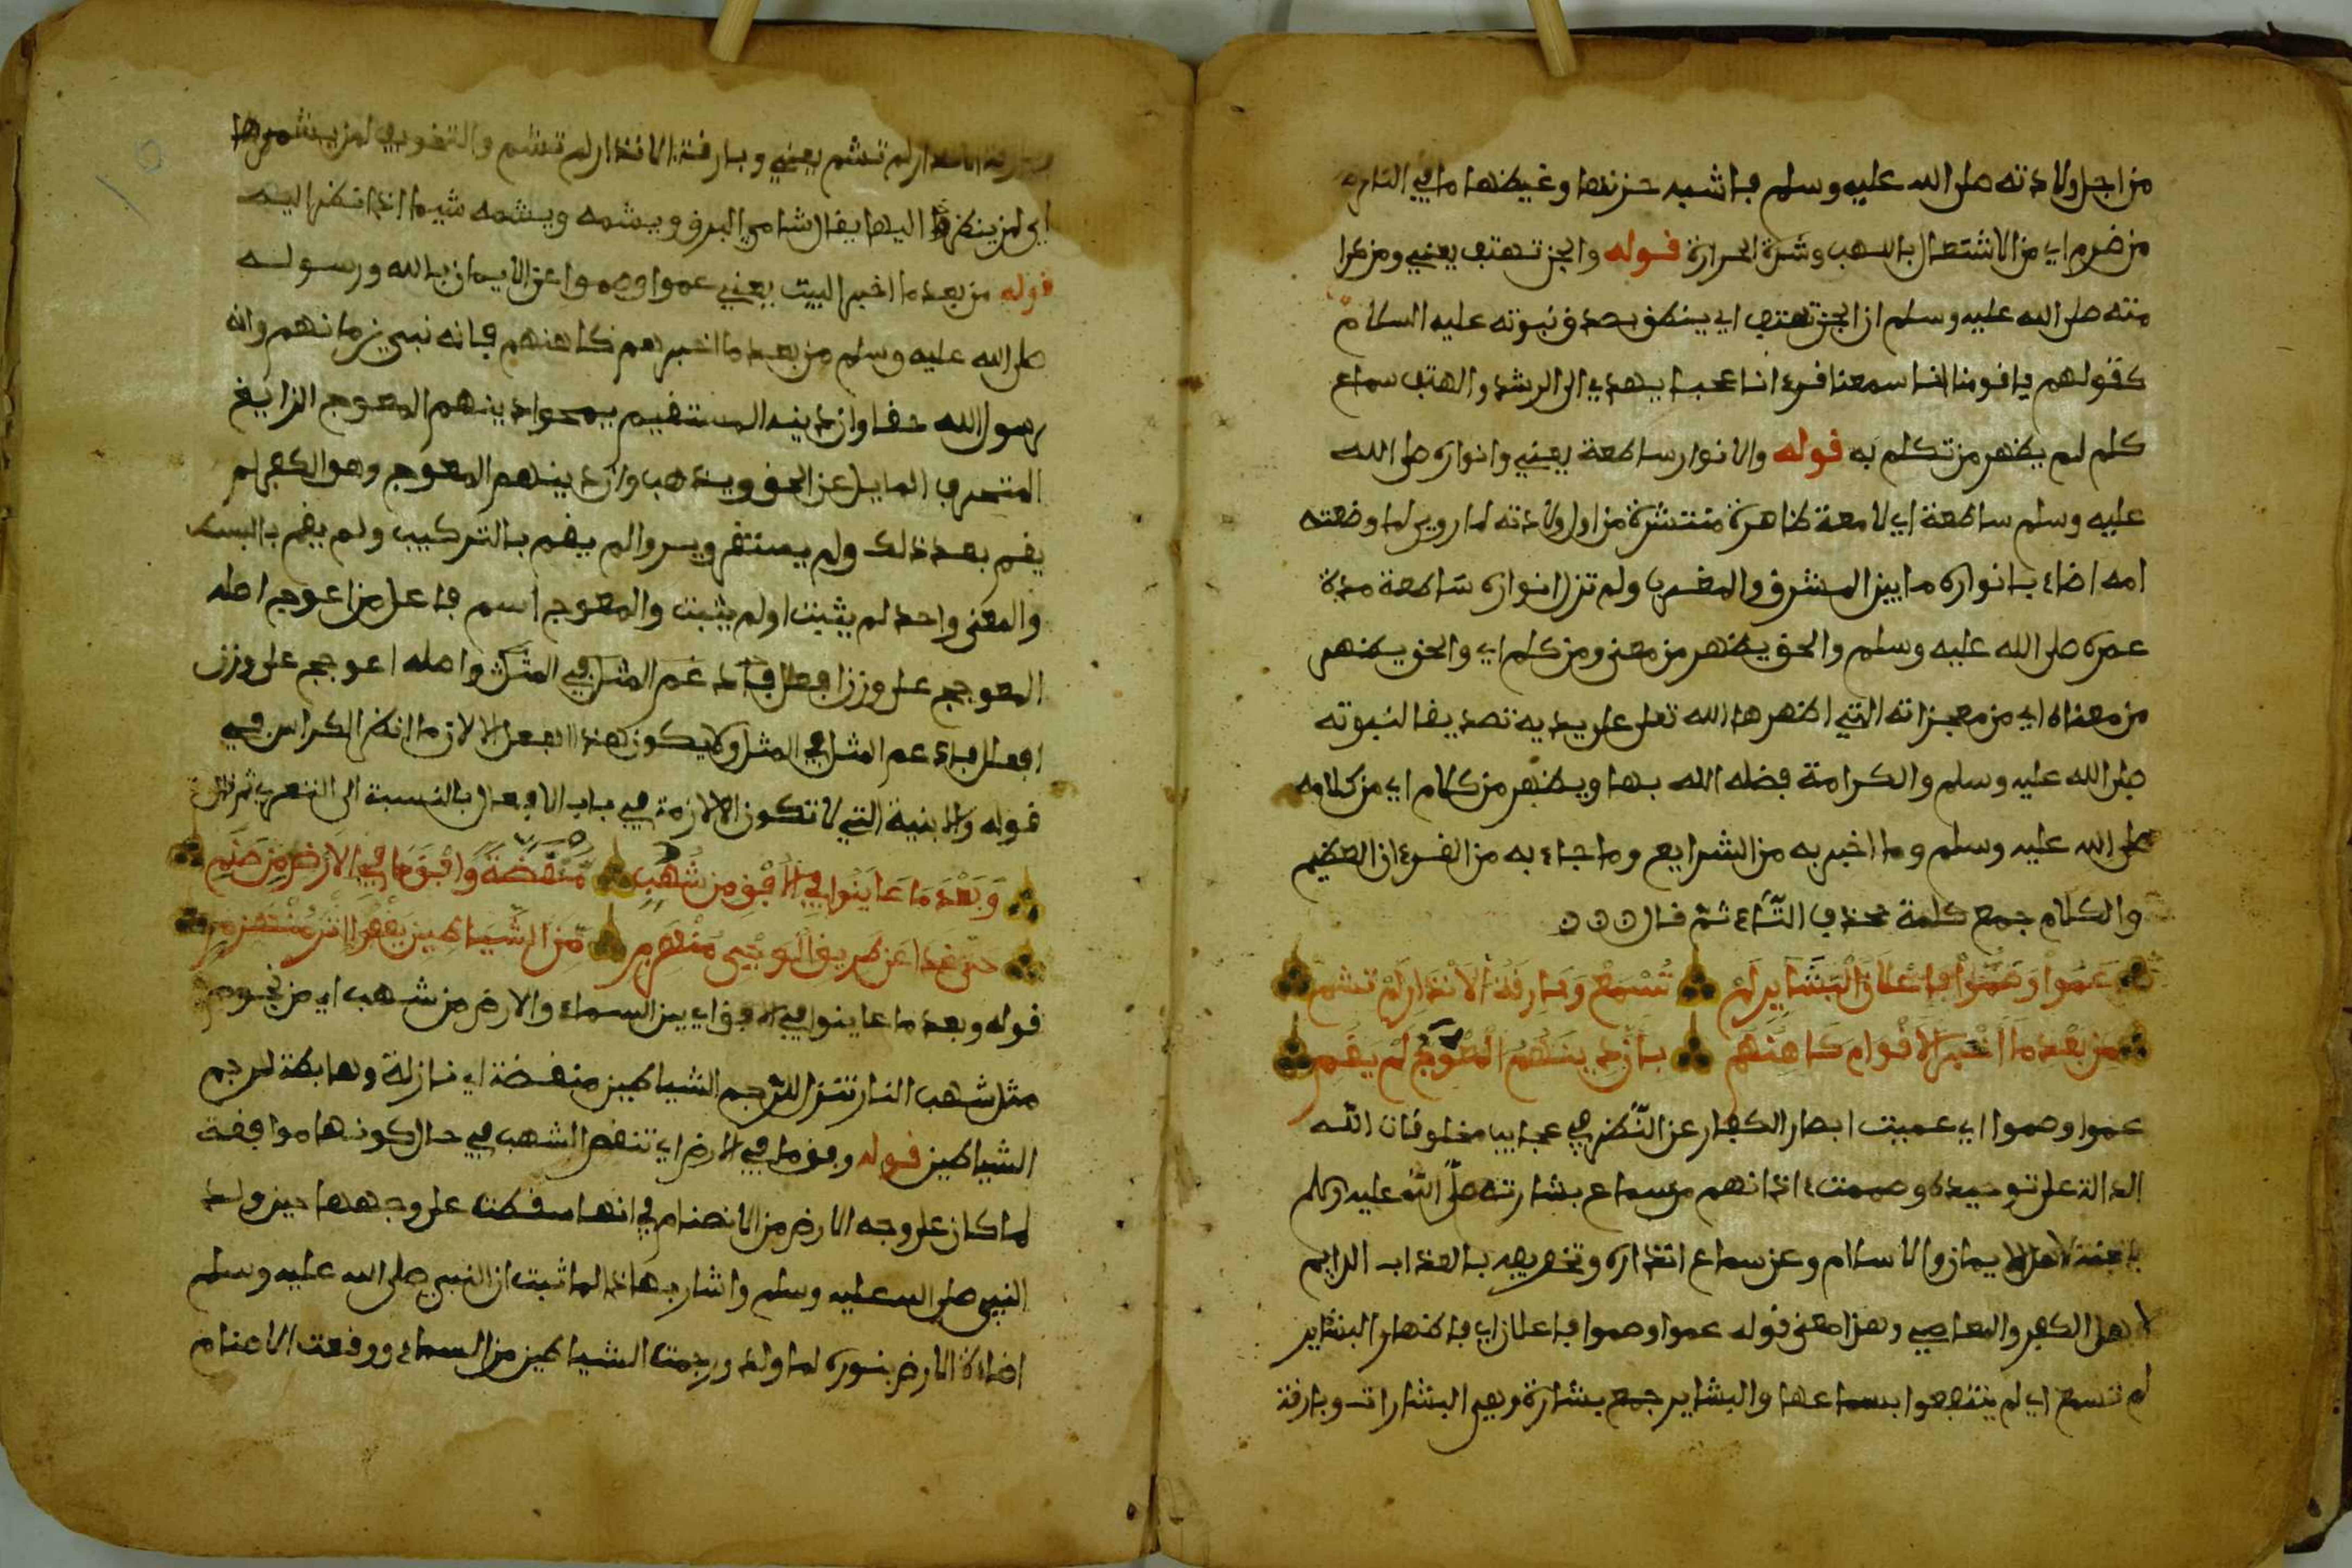 من اجل ولادته صلى الله عليه وسلم فاشبه حزنها وغيظها ما في النار
من ضرم اي من الاشتعال باللهب وشدة الحرارة قوله والجن تهتف يعني ومن
منته صلى الله عليه وسلم ان الجن تهتف اي ينطق بصدق نبوته عليه السلام
كقولهم يا قومنا انا سمعنا قرءانا عجبا يهدي الى الرشد والهتف سماع
كلم لم يظهر من تكلم به قوله والانوار ساطعة يعني وانواره صلى الله
عليه وسلم ساطعة اي لامعة ظاهرة منتشرة من اول ولادته لما روي لما وضعته
امه اضاء بانواره ما بين المشرق والمغرب ولم تزل انواره ساطعة مدة
عمره صلى الله عليه وسلم والحق يظهر من معنى ومن كلم اي والحق يظهر
من معناه اي من معجزاته التي اظهرها الله تعلى على يديه تصديقا لنبوته
صلى الله عليه وسلم والكرامة فضله الله بها ويظهر من كلام اي من كلامه
صلى الله عليه وسلم وما اخبر به من الشرايع وما جاء به من القرءان العظيم
والكلام جمع كلمة بحذف التاء ثم قال
عَمُوا وَصَمُّوا فَإِعْلَانُ الْبَشَايِرِ لَمْ تُسْمَعْ وَبَارِقَةُ الْأَنْذَارِ لَمْ تُشَمِ
مِنْ بَعْدِ مَا أَخْبَرَ الْأَقْوَامَ كَاهِنُهُمْ بِأَنَّ دِينَهُمُ الْمُعْوَجَّ لَمْ يَقُمِ
عموا وصموا اي عميت ابصار الكفار عن النظر في عجايب مخلوقات الله
الدالة على توحيده وصمت ءاذانهم من سماع بشارته صلى الله عليه وسلم
بالجنة لاهل الايمان والاسلام وعن سماع انذاره وتخويفه بالعذاب الدايم
لاهل الكفر والمعاصي وهذا معنى قوله عموا وصموا فاعلان اي فاظهار البشاير
لم تسمع اي لم ينتفعوا بسماعها والبشاير جمع بشارة وهي البشارات وبارقة
الانذار لم تشم يعني وبارقة الانذار لم تشم والتخويف لمن يشمها
اي لمن ينظر اليها يقال شام البرق ويشمه ويشمه شيما اذا نظر اليه
قوله من بعد ما اخبر البيت يعني عموا وصموا عن الايمان بالله ورسوله
صلى الله عليه وسلم من بعد ما اخبرهم كاهنهم فانه نبي زمانهم وانه
رسول الله حقا وان دينه المستقيم يمحوا دينهم المعوج الزايغ
المنحرف المايل عن الحق ويذهب وان دينهم المعوج وهو الكفر لم
يقم بعد ذلك ولم يستقر ويروا لم يقم بالتركيب ولم يقم بالبسط
والمعنى واحد لم يثبت اولم يثبت والمعوج اسم فاعل من اعوج اصله
المعوجج على وزن افعلل فادغم المثل في المثل واصله اعوجج على وزن
افعلل فادغم المثل في المثل ولا يكون هذا الفعل الا لازما انظر الكراس في
قوله والابنية التي لا تكون الا لازمة في باب الافعال بالنسبة الى التعريف ثم قال
وَبَعْدَ مَا عَايَنُوا فِي الْأُفْقِ مِنْ شُهُبٍ مُنْقَضَّةٍ وَفْقَ مَا فِي الْأَرْضِ مِنْ صَنَمِ
حتى غدا عن طريق الوحي منهزم من الشياطين يقفوا اثر منهزم
قوله وبعد ما عاينوا في الافق اي بين السماء والارض من شهب اي من نجوم
مثل شهب النار تنزل لترجم الشياطين منقضة اي نازلة وهابطة لرجم
الشياطين قوله وفق ما في الارض اي تنقض الشهب في حال كونها موافقة
لما كان على وجه الارض من الاصنام في انها سقطت على وجهها حين ولد
النبي صلى الله عليه وسلم واشار بهاذا لما ثبت ان النبي صلى الله عليه وسلم
اضاءة الارض بنوره لما ولد ورجمت الشياطين من السماء ووقعت الاصنام